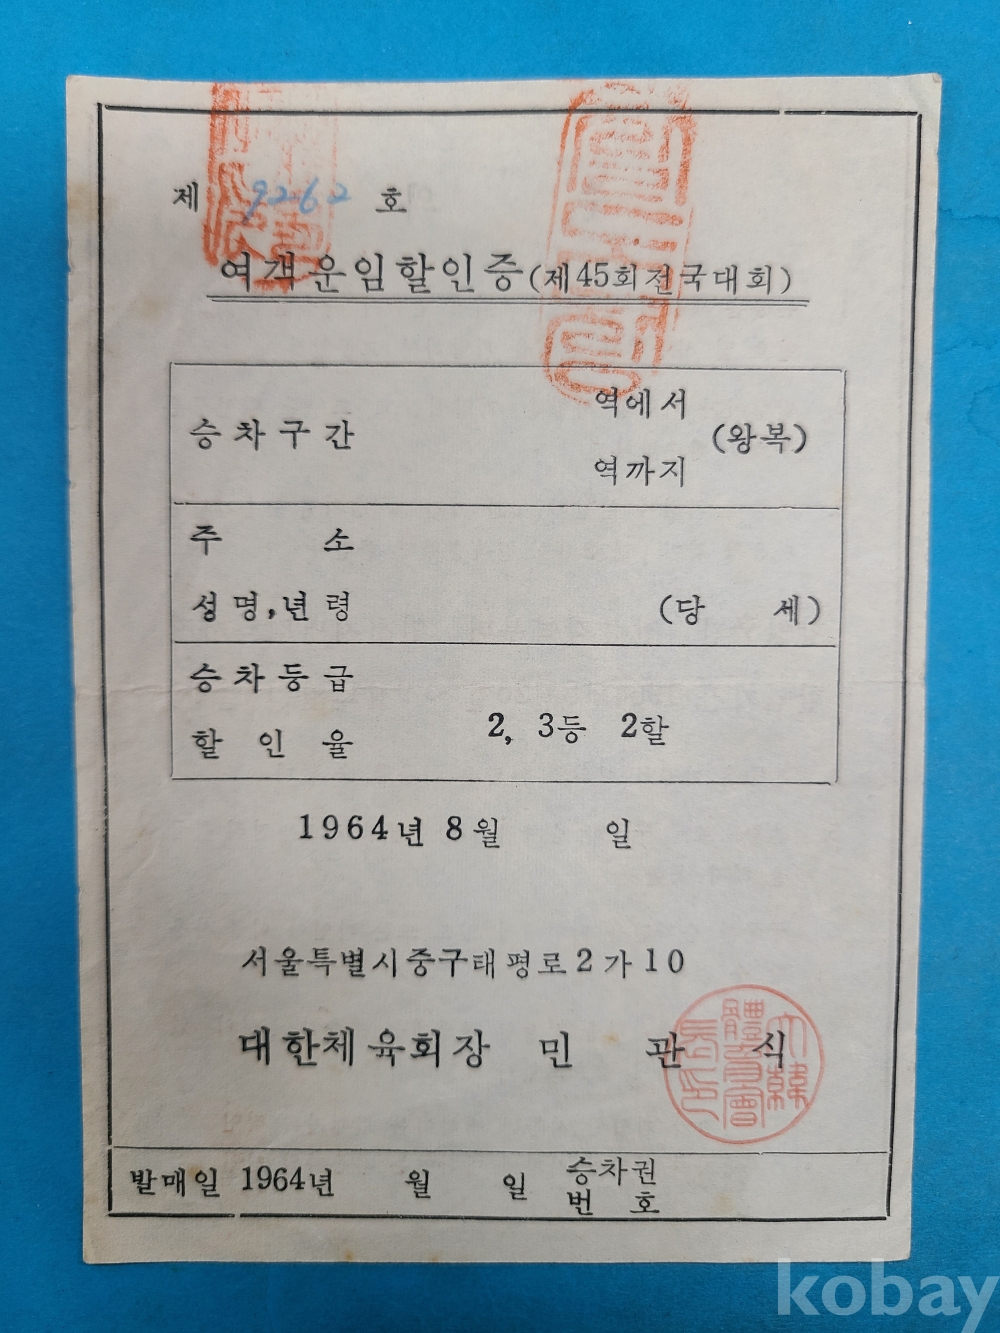 제 9262 호
여객운임할인증(제45회전국대회)
승차구간
역에서
(왕복)
역까지
주 소
성명,년령 (당 세)
승차등급
할인율
2, 3등 2할
1964년 8월 일
서울특별시중구태평로2가10
대한체육회장 민관식
大韓
體育會
長印
발매일 1964년 월 일
승차권
번호
kobay